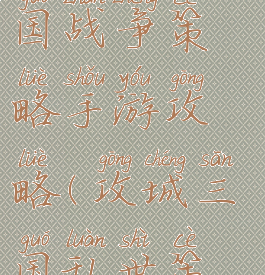 guó zhàn zhēng cè
国战争策
lüè shǒu yóu gōng
略手游攻
lüè gōng chéng sān
略(攻城三
guó luàn shì cè
国乱世策